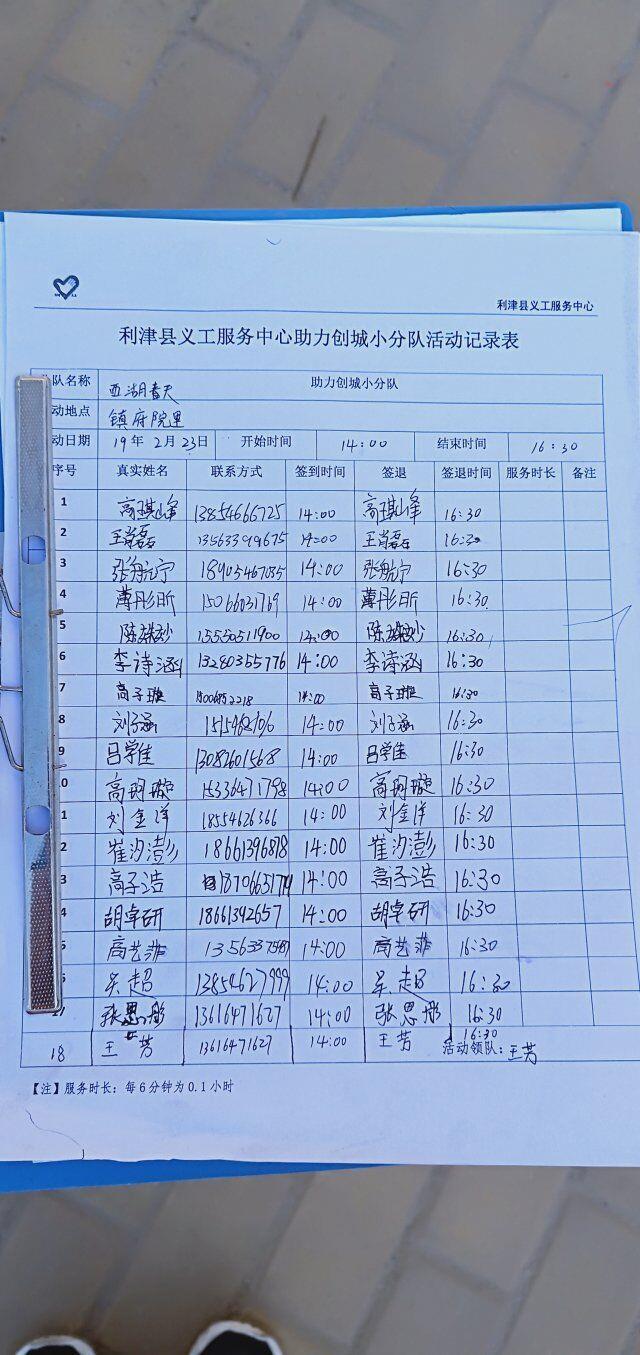 利津县义工服务中心
利津县义工服务中心助力创城小分队活动记录表
队名称 西湖春天 助力创城小分队
动地点 镇府院里
动日期 19年2月23日 开始时间 14:00 结束时间 16:30
序号 真实姓名 联系方式 签到时间 签退 签退时间 服务时长 备注
1 高琪峰 13854666725 14:00 高琪峰 16:30
2 王肖磊 13563399675 14:00 王肖磊 16:30
3 张航宁 18905467035 14:00 张航宁 16:30
4 薄彤昕 15066031769 14:00 薄彤昕 16:30
5 陈 15550511900 14:00 陈 16:30
6 李诗涵 13280355776 14:00 李诗涵 16:30
7 高子璇 14:00 高子璇 16:30
8 刘子涵 14:00 刘子涵 16:30
9 吕学佳 13082601568 14:00 吕学佳 16:30
0 高玥璇 15336471798 14:00 高玥璇 16:30
1 刘金洋 18554626366 14:00 刘金洋 16:30
2 崔汐澎 18661396878 14:00 崔汐澎 16:30
3 高子浩 14:00 高子浩 16:30
4 胡卓研 18661392657 14:00 胡卓研 16:30
5 高艺菲 14:00 高艺菲 16:30
吴超 13854627999 14:00 吴超 16:30
17 张思彤 13616471627 14:00 张思彤 16:30
18 王芳 13616471627 14:00 王芳 16:30 活动领队:王芳
【注】服务时长:每6分钟为0.1小时